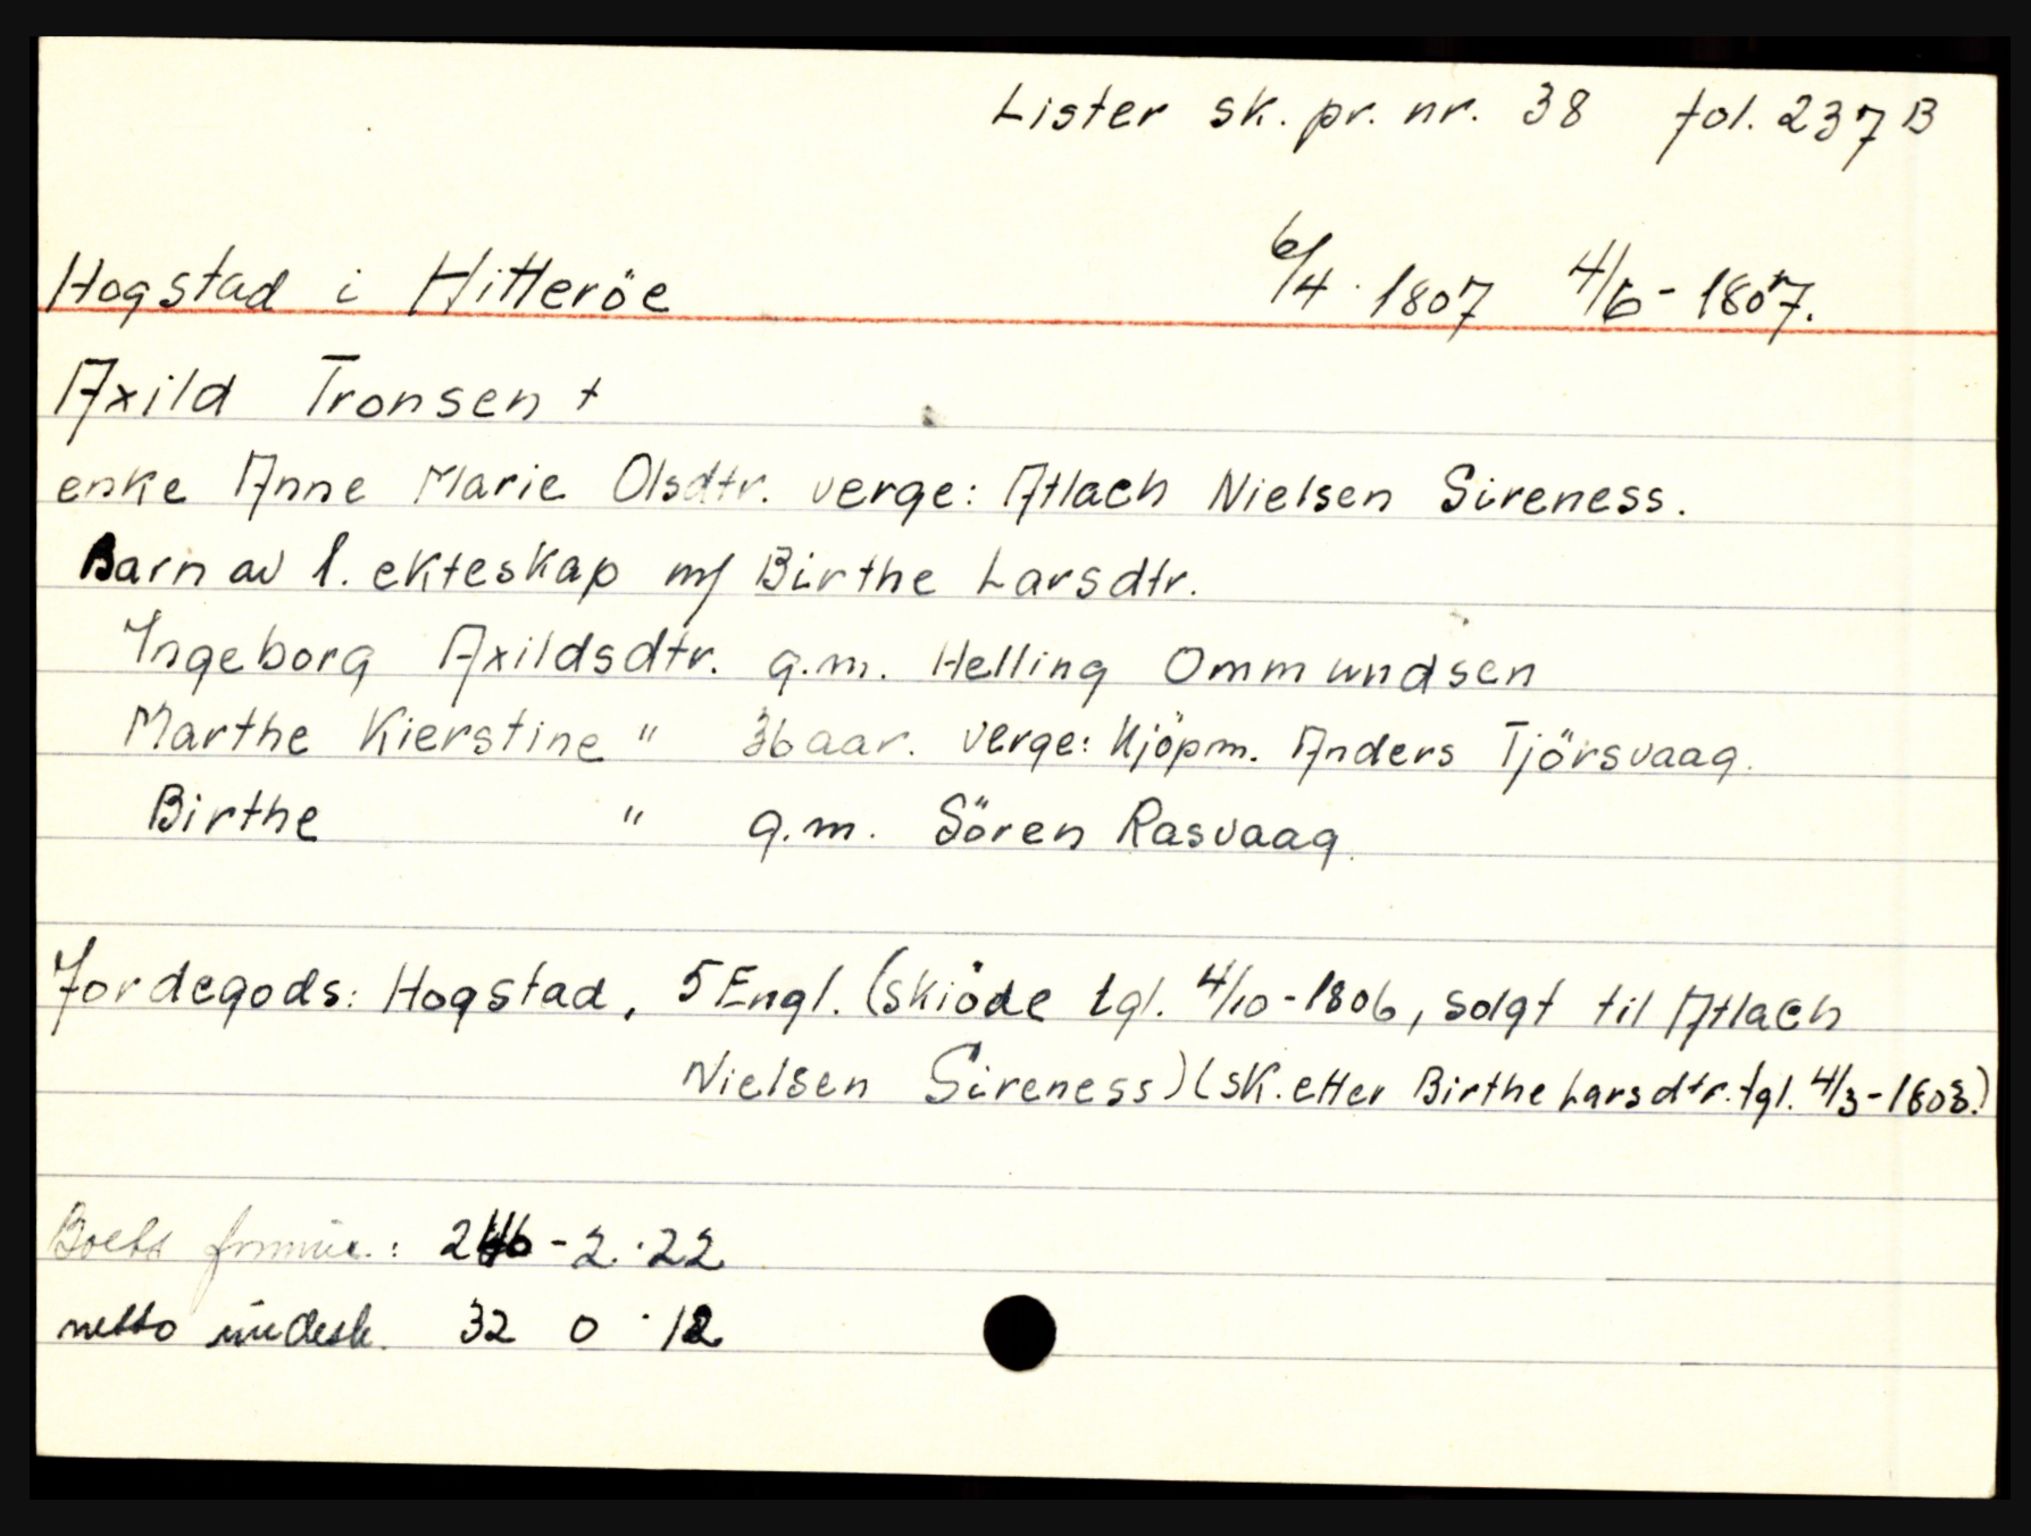 Lister sk. pr. nr. 38 fol. 237 B
Hogstad i Hitteröe 6/4 · 1807 4/6 - 1807.
Axild Tronsen +
enke Anne Marie Olsdtr. verge: Atlach Nielsen Sireness.
Barn av 1. ekteskap m/ Birthe Larsdtr.
Ingeborg Axildsdtr. g.m. Helling Ommundsen
Marthe Kierstine " 36 aar. verge: Kjöpm. Anders Tjörsvaag.
Birthe " g.m. Sören Rasvaag.
Jordegods: Hogstad, 5 Engl. (skiöde tgl. 4/10 - 1806, solgt til Atlach
Nielsen Sireness) (sk. etter Birthe Larsdtr. tgl. 4/3 - 1803.)
Boets formue.: - 2 · 22
netto 32 0 · 12